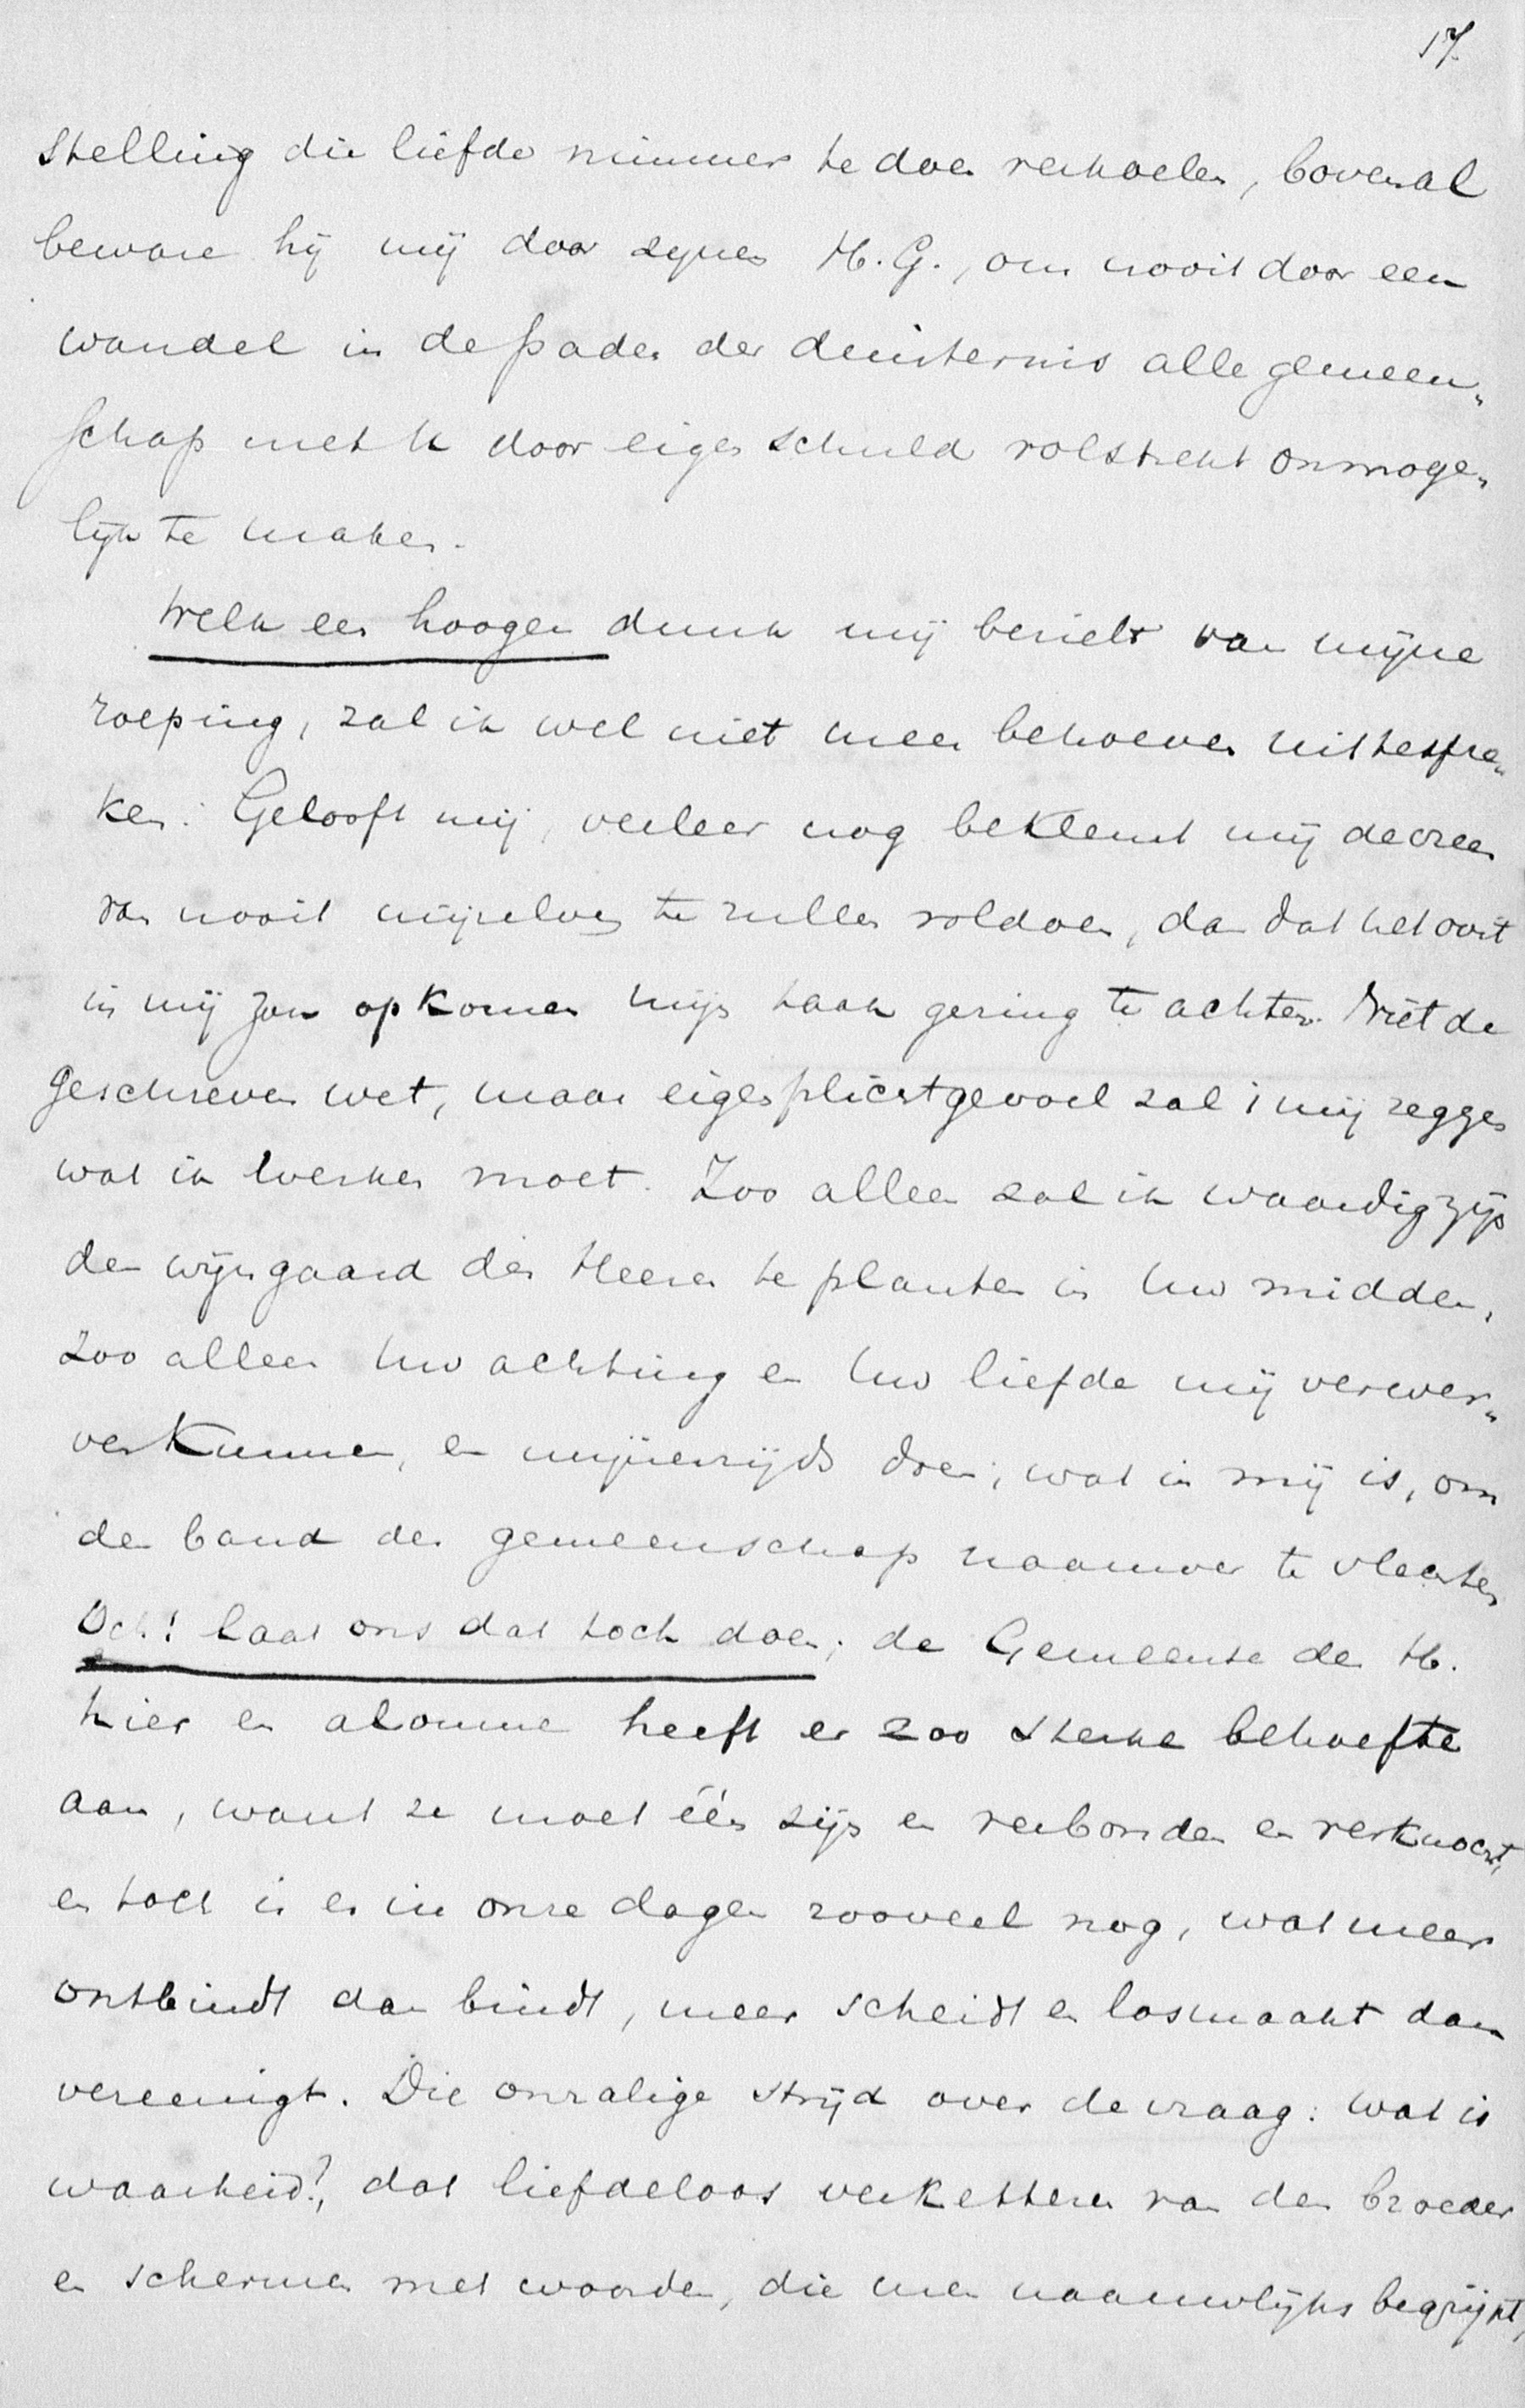 17.
stelling die liefde nimmer te doen verkoelen, bovenal
beware hij mij door zijnen H. G., om nooit door een
wandel in de paden der duisternis alle gemeen„
schap met U door eigen schuld volstrekt onmoge„
lijk te maken.
Welk een hoogen dunk mij bezielt van mijne
roeping, zal ik wel niet meer behoeven uittespre„
ken. Gelooft mij, veeleer nog beklemt mij de vrees
van nooit mijzelven te zullen voldoen, dan dat het ooit
in mij zou opkomen mijn taak gering te achten. Niet de
geschreven wet, maar eigen plichtgevoel zal 't mij zeggen
wat ik werken moet. Zoo alleen zal ik waardig zijn
den wijngaard des Heeren te planten in Uw midden,
zoo alleen Uw achting en Uw liefde mij verwer„
ven kunnen, en mijnerzijds doen, wat in mij is, om
den band der gemeenschap naauwer te vlechten
Och! laat ons dat toch doen; de Gemeente des H.
hier en alomme heeft er zoo sterke behoefte
aan, want ze moet één zijn en verbonden en verknocht,
en toch is er in onze dagen zooveel nog, wat meer
ontbindt dan bindt, meer scheidt en losmaakt dan
vereenigt. Die onzalige strijd over de vraag: wat is
waarheid?, dat liefdeloos verketteren van den broeder
en schermen met woorden, die men naauwlijks begrijpt,